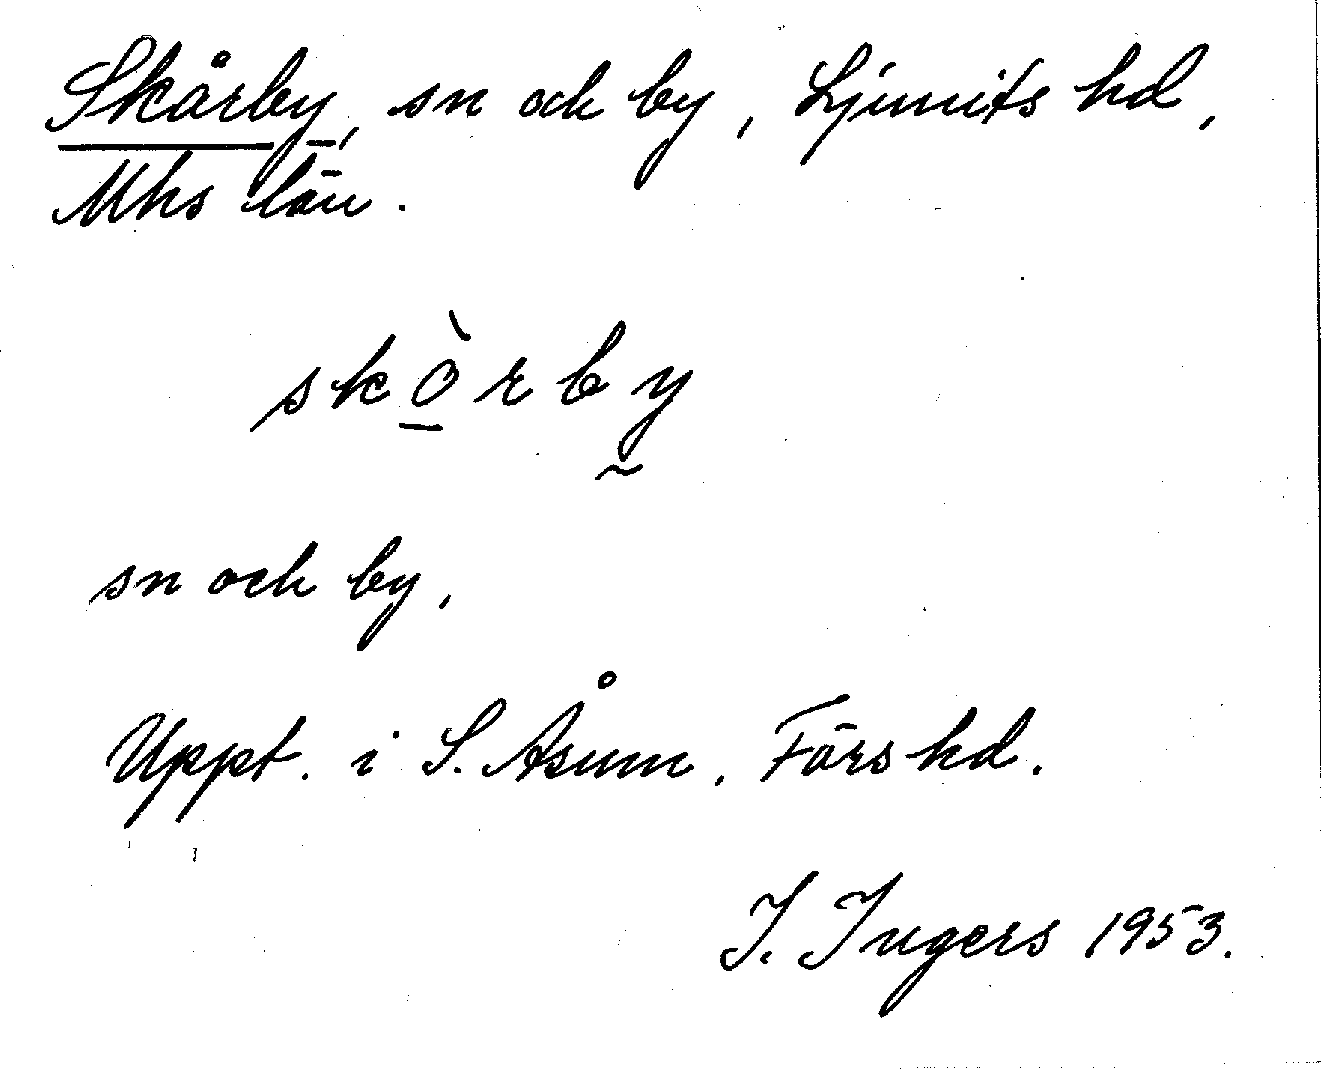 Skårby, sn och by, Ljunits hd,
Mhs län.
skò̠rby̰
sn och by.
Uppt. i S. Åsum. Färs hd.
I. Ingers 1953.